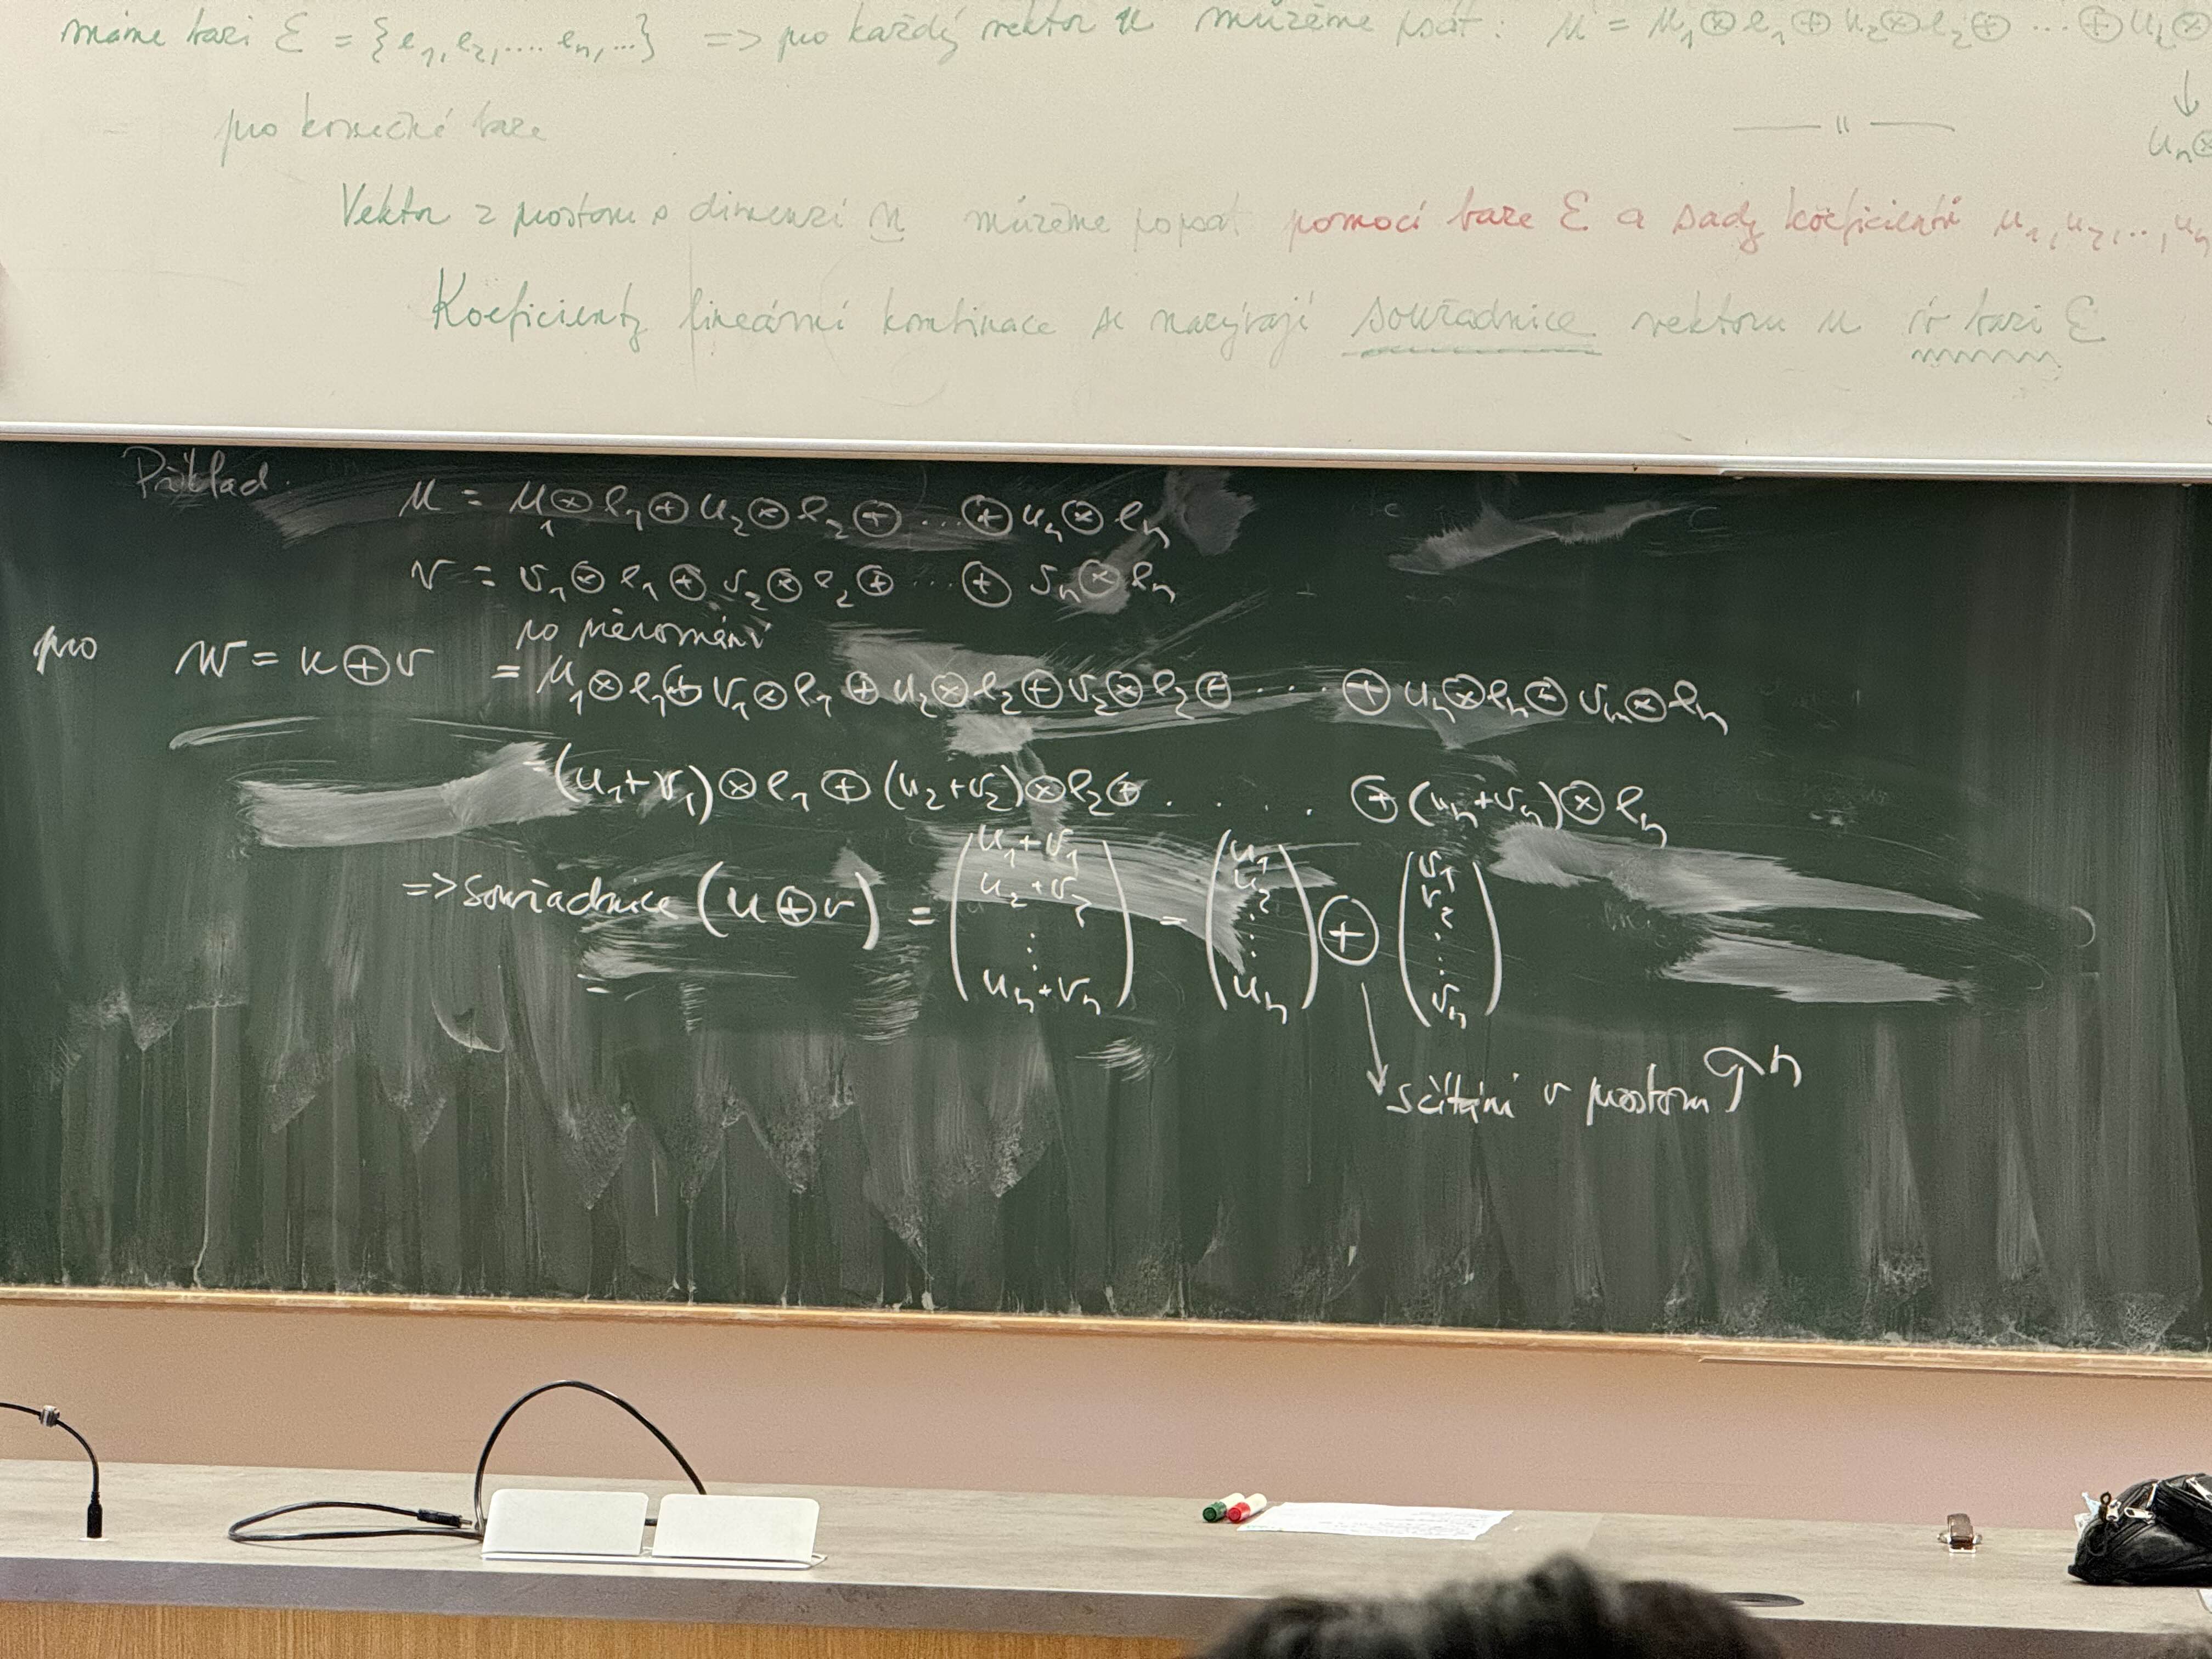 máme bazi ℰ = {e₁, e₂, .... eₙ, ...} => pro každý vektor u můžeme psát: u = u₁⊗e₁⊕u₂⊗e₂⊕ ... ⊕u₂⊗
↓
pro konečné baze —— " —— uₙ⊗
Vektor z prostoru s dimenzi n můžeme popsat pomocí baze ℰ a sady koeficientů u₁, u₂, .., uₙ
Koeficienty lineární kombinace se nazývají souřadnice vektoru u v bazi ℰ
Příklad.
u = u₁⊗e₁⊕u₂⊗e₂⊕ ... ⊕uₙ⊗eₙ
v = v₁⊗e₁⊕v₂⊗e₂⊕ ... ⊕vₙ⊗eₙ
po přerovnání
pro w = u⊕v = u₁⊗e₁⊕v₁⊗e₁⊕u₂⊗e₂⊕v₂⊗e₂⊕ .... ⊕uₙ⊗eₙ⊕vₙ⊗eₙ
(u₁+v₁)⊗e₁⊕(u₂+v₂)⊗e₂⊕ . . . . ⊕(uₙ+vₙ)⊗eₙ
=> souřadnice (u⊕v) = (u₁+v₁ u₂+v₂ ⋮ uₙ+vₙ) = (u₁ u₂ ⋮ uₙ) ⊕ (v₁ v₂ ⋮ vₙ)
↓ sčítání v prostoru 𝒯ⁿ